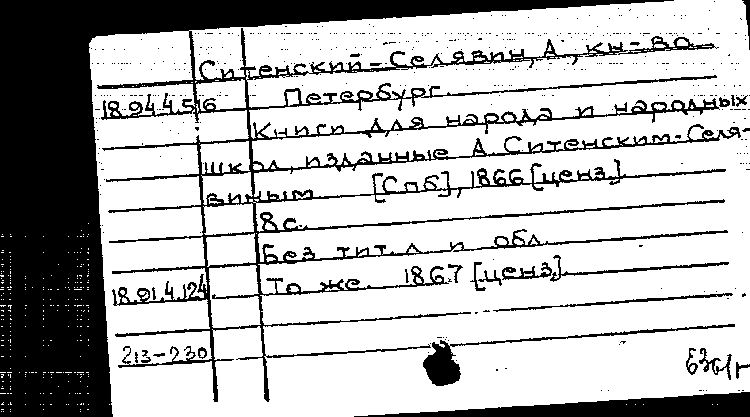 Ситенский-Селявин, А., кн-во
18.94.4.516 Петербург.
Книги для народа и народных
школ, изданные А. Ситенским-Селя-
виным [Спб], 1866 [ценз.].
8 с.
Без тит. л. и обл.
18.91.4.124 То же. 1867 [ценз.].
213-230